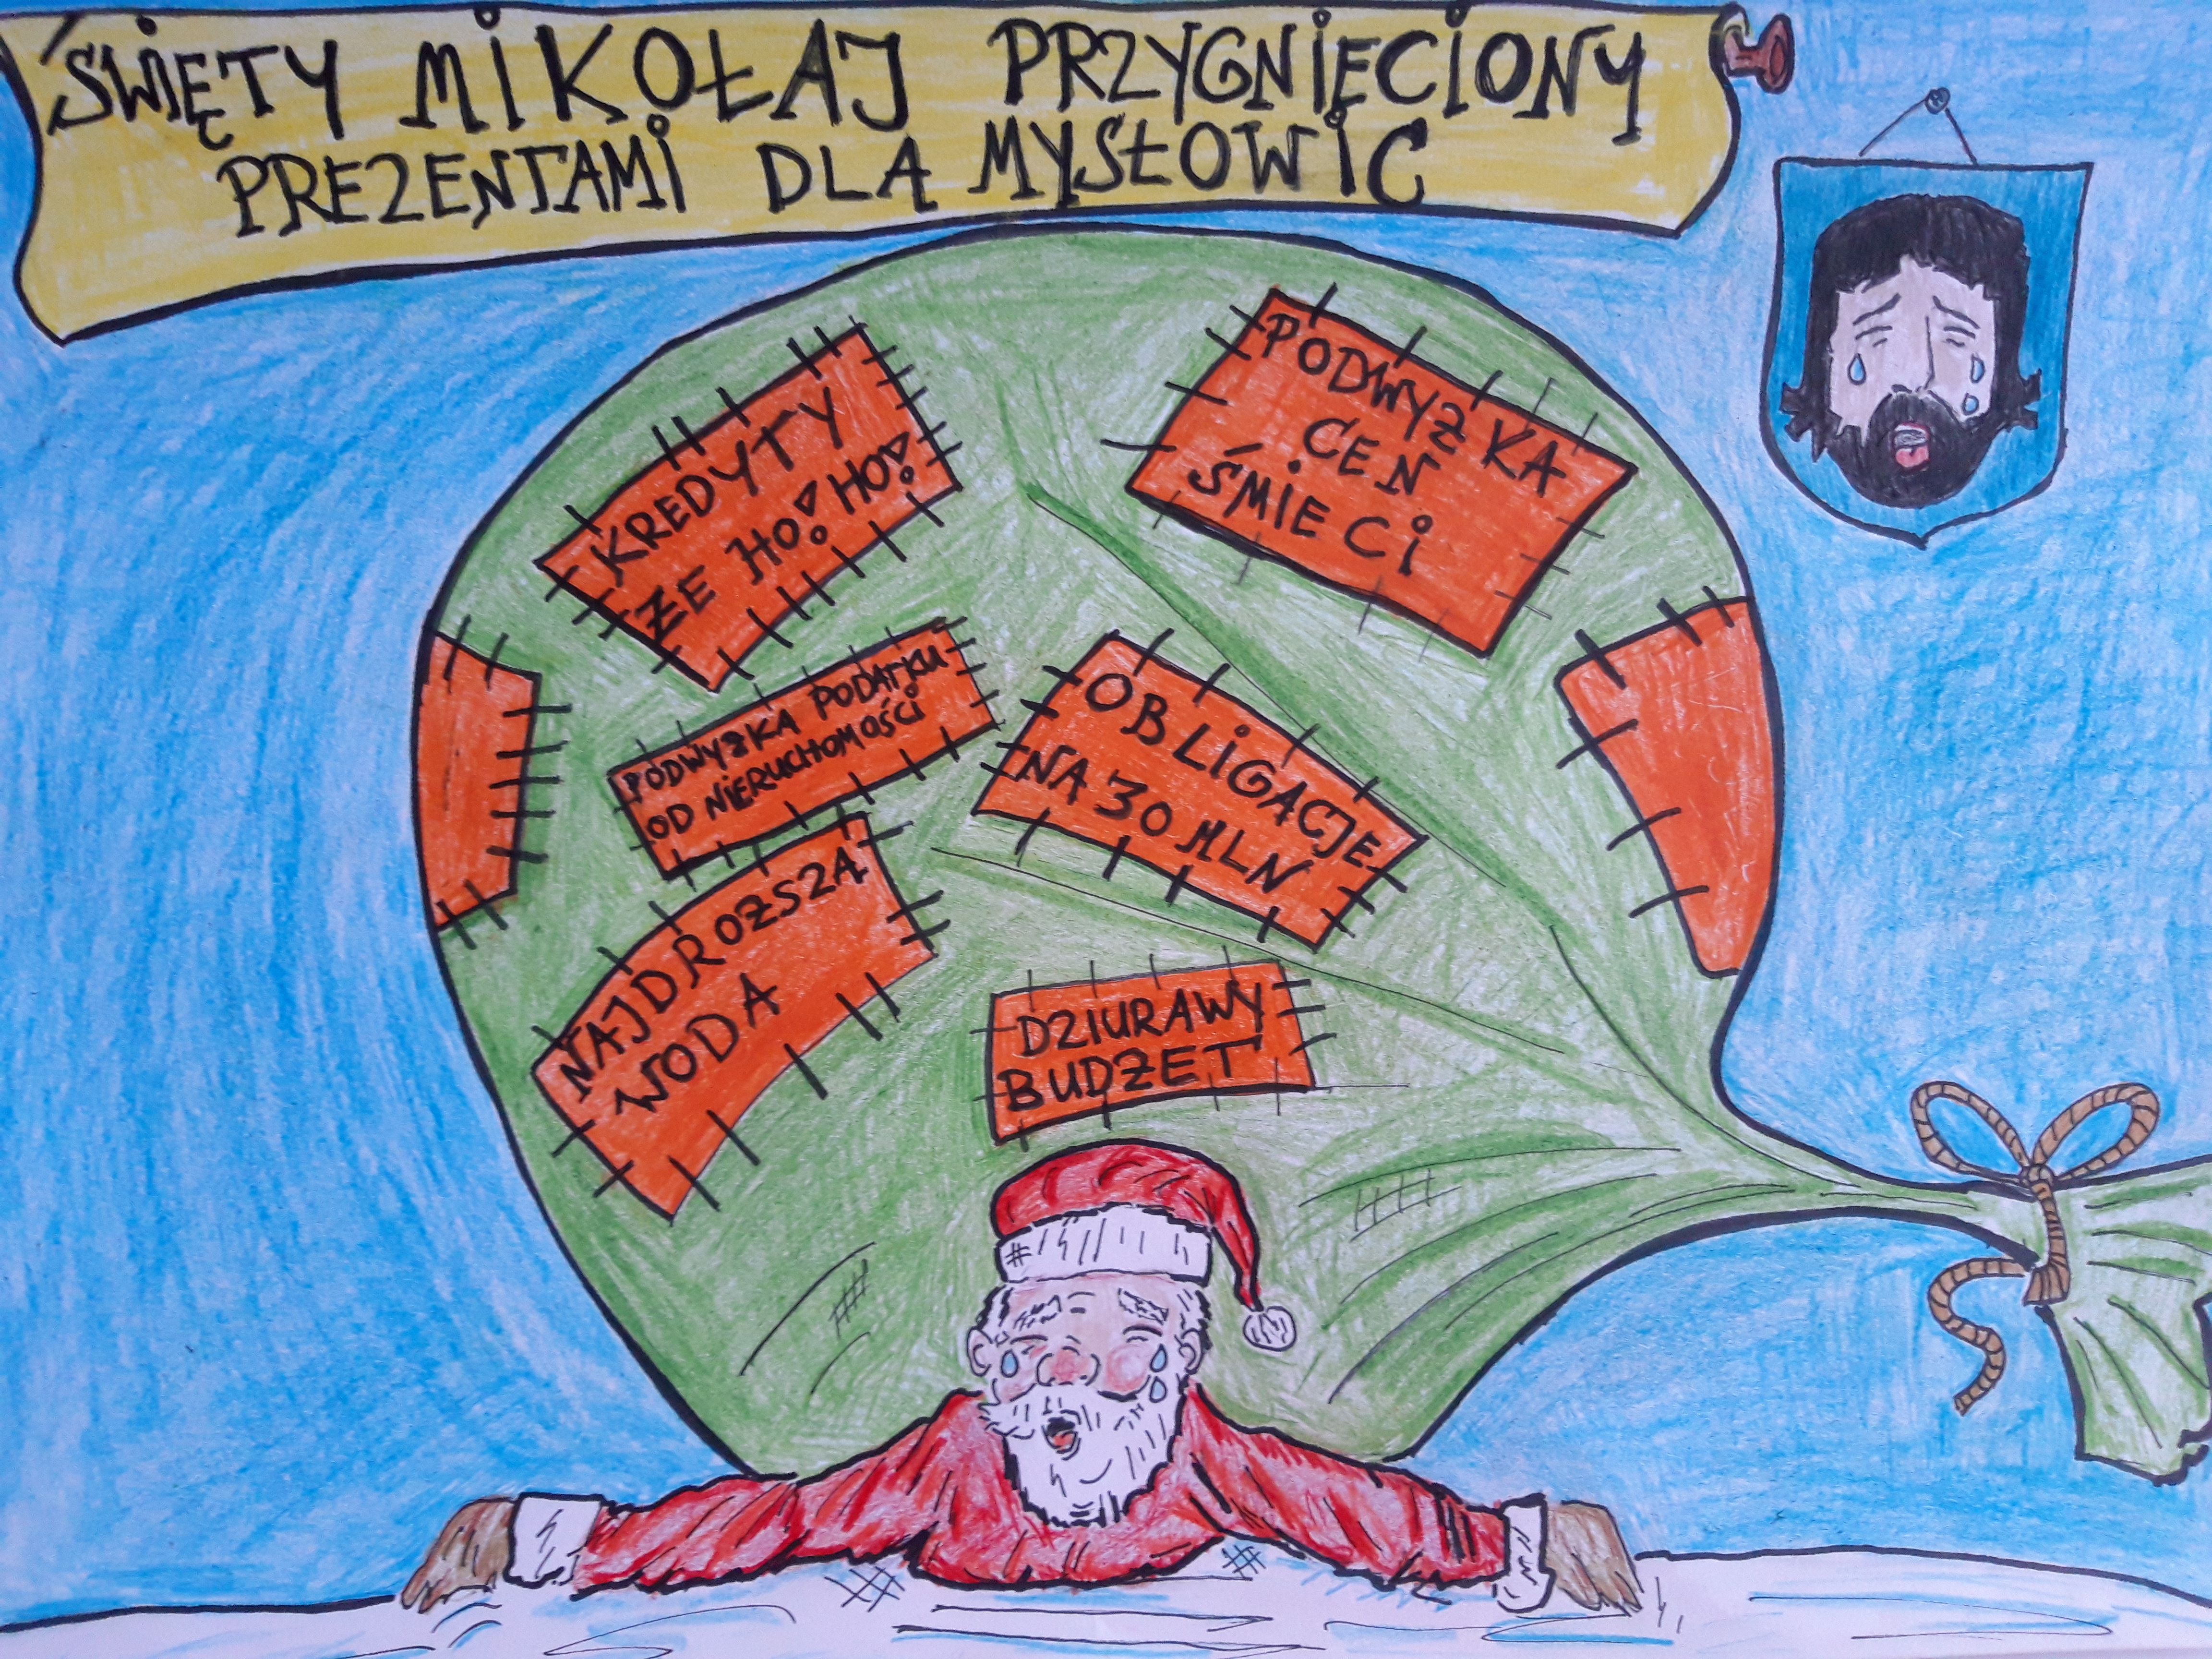 ŚWIĘTY MIKOŁAJ PRZYGNIĘCIONY
PREZENTAMI DLA MYSŁOWIC
KREDYTY
ŻE HO! HO!
PODWYŻKA
CEN
ŚMIECI
PODWYŻKA PODATKU
OD NIERUCHOMOŚCI
OBLIGACJE
NA 30 MLN
NAJDROŻSZA
WODA
DZIURAWY
BUDŻET